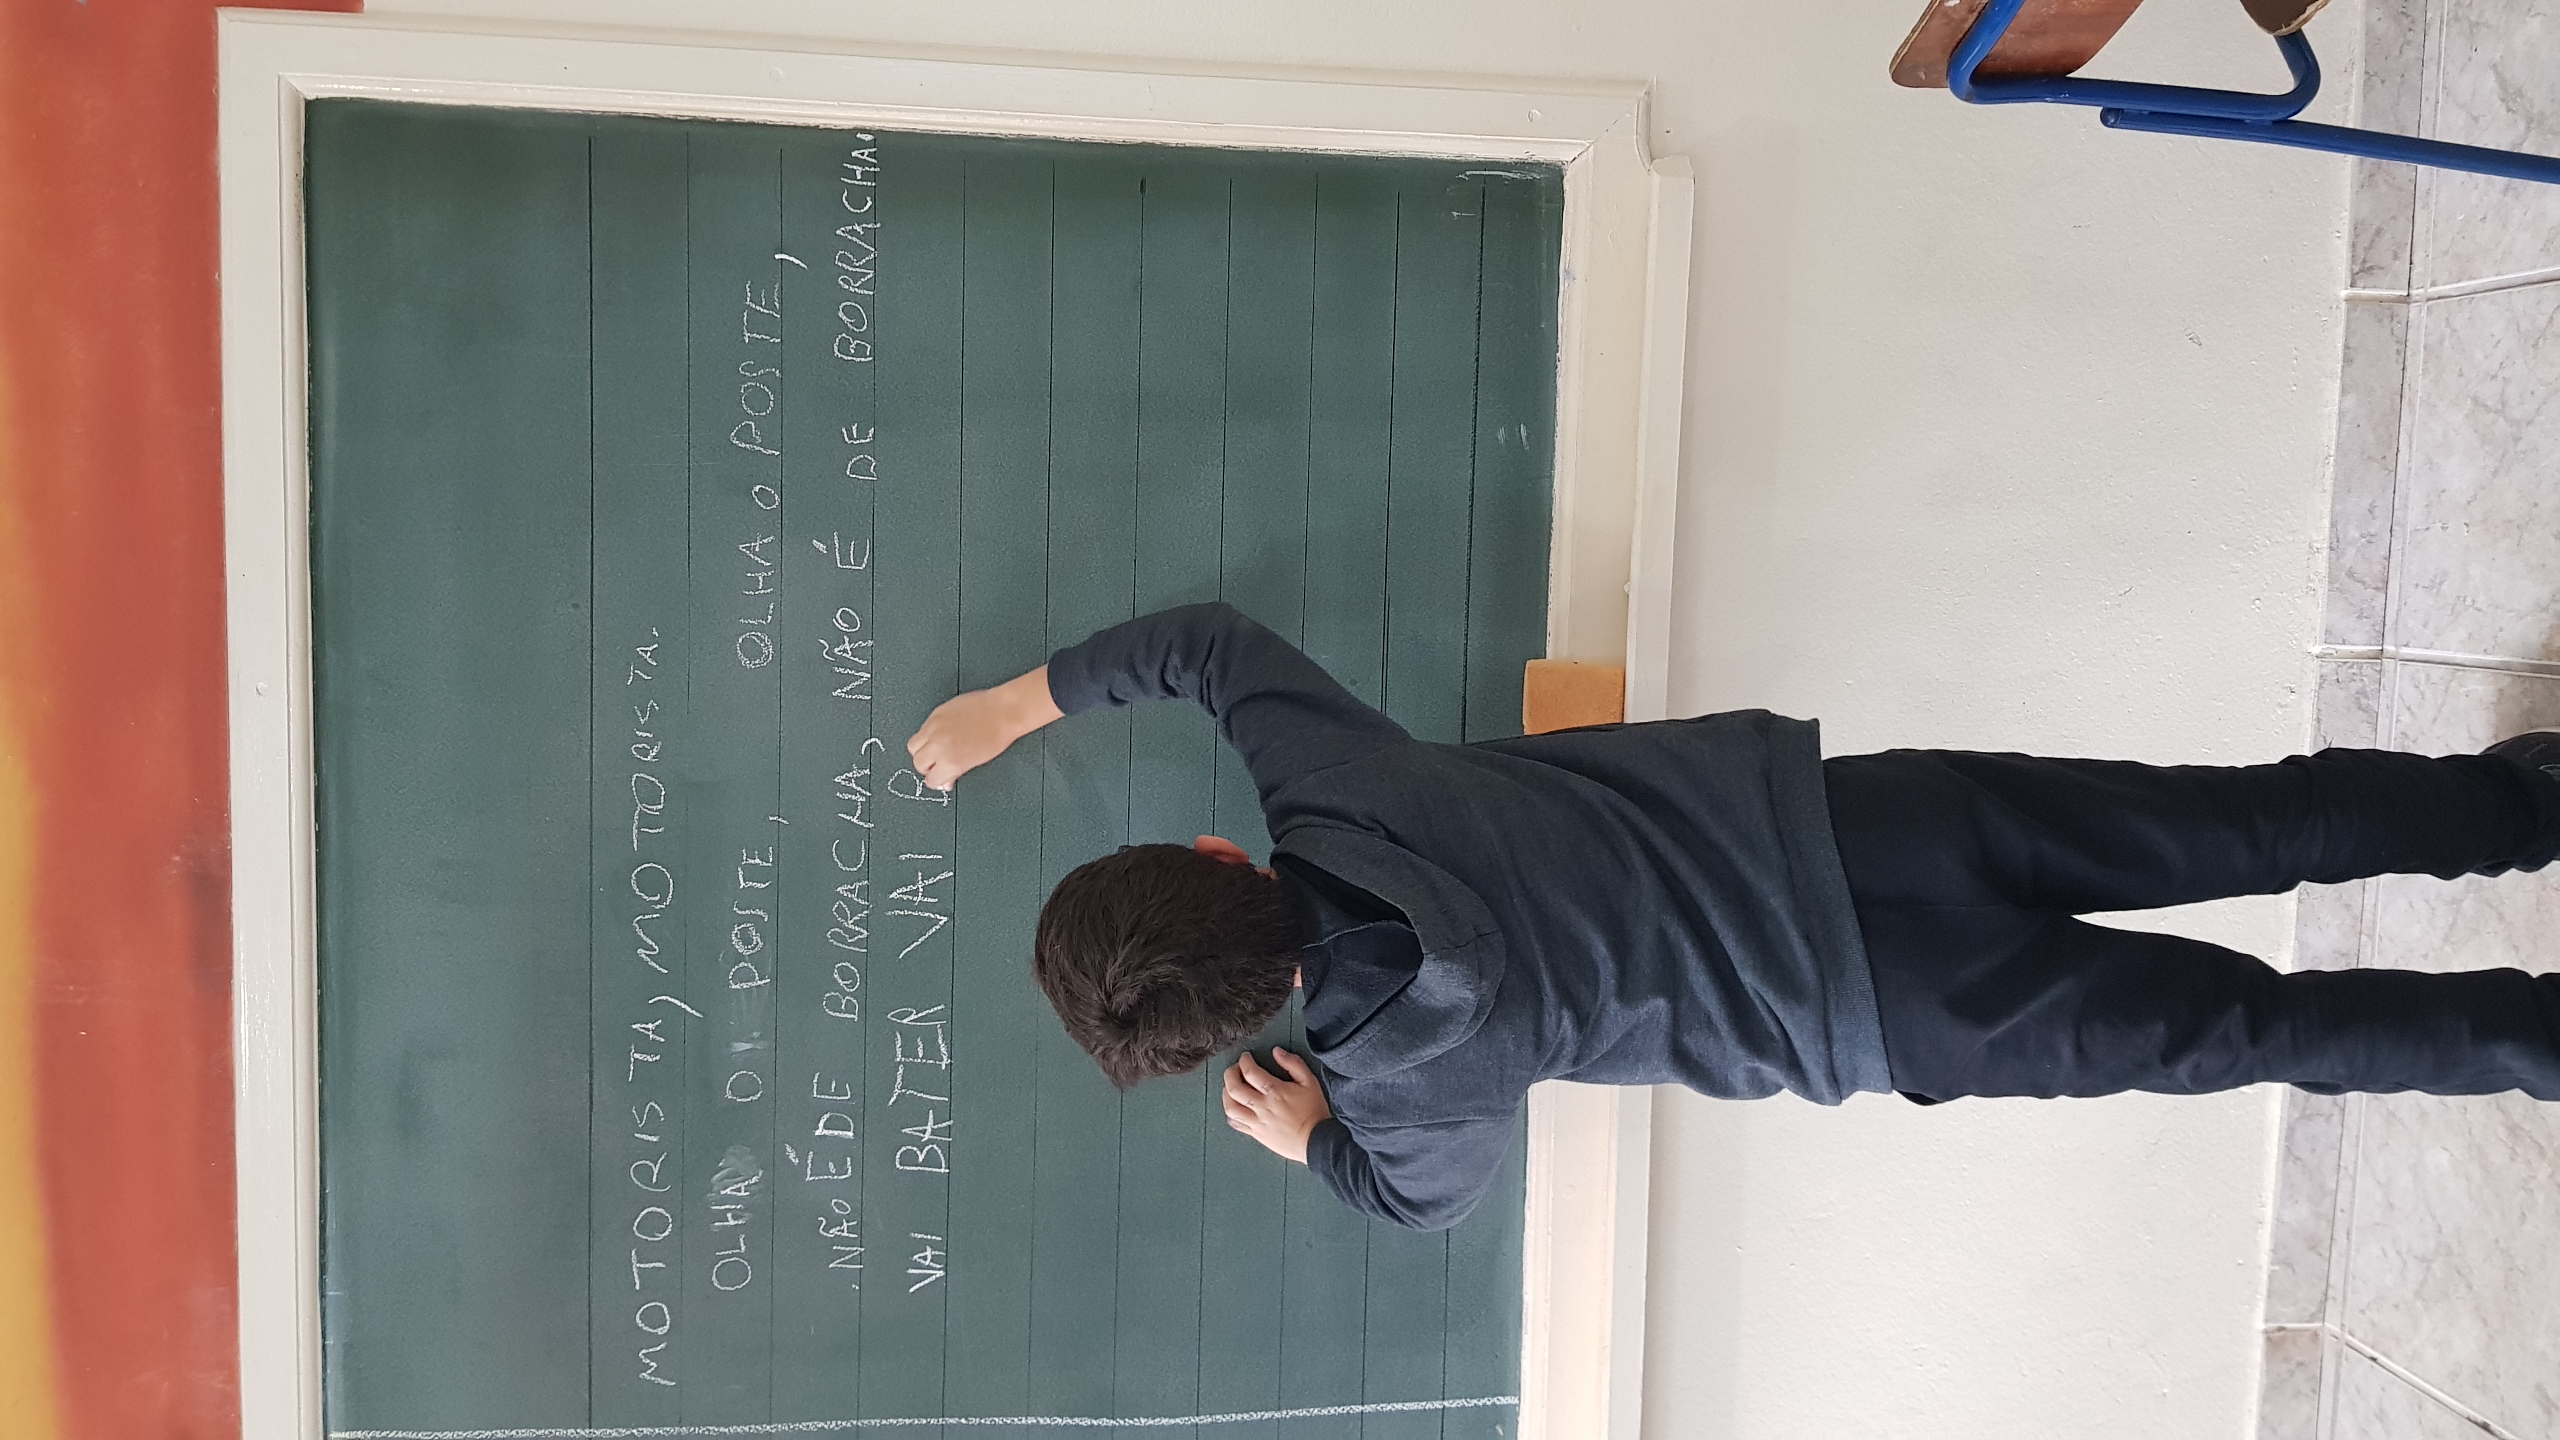 MOTORISTA, MOTORISTA.
OLHA O POSTE, OLHA O POSTE,
NÃO É DE BORRACHA, NÃO É DE BORRACHA.
VAI BATER VAI B